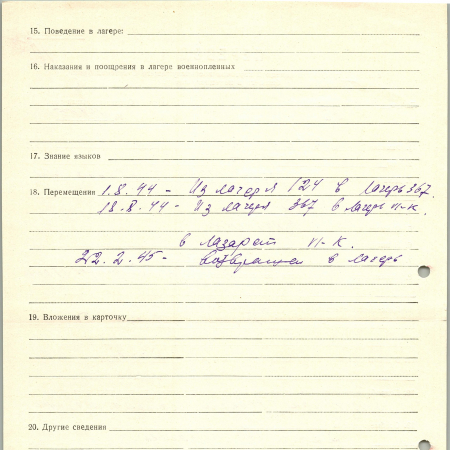 15. Поведение в лагере:
16. Наказания и поощрения в лагере военнопленных
17. Знание языков
18. Перемещения 1.8.44 - Из лагеря 124 в лагерь 367.
18.8.44 - Из лагеря 367 в лагерь п-к.
в лазарет п-к.
22.2.45 - в лагерь
19. Вложения в карточку
20. Другие сведения